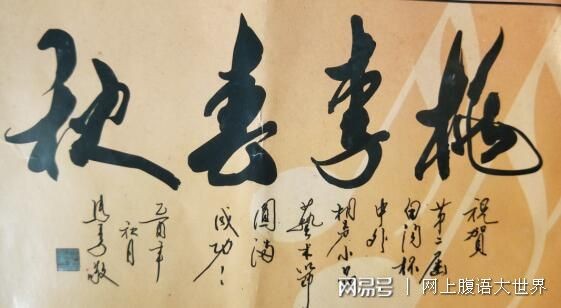 桃李春秋
祝賀
第二届
白沟杯
中外
相声小品
藝术節
圆满
成功！
乙酉年
秋月
网易号 | 网上腹语大世界